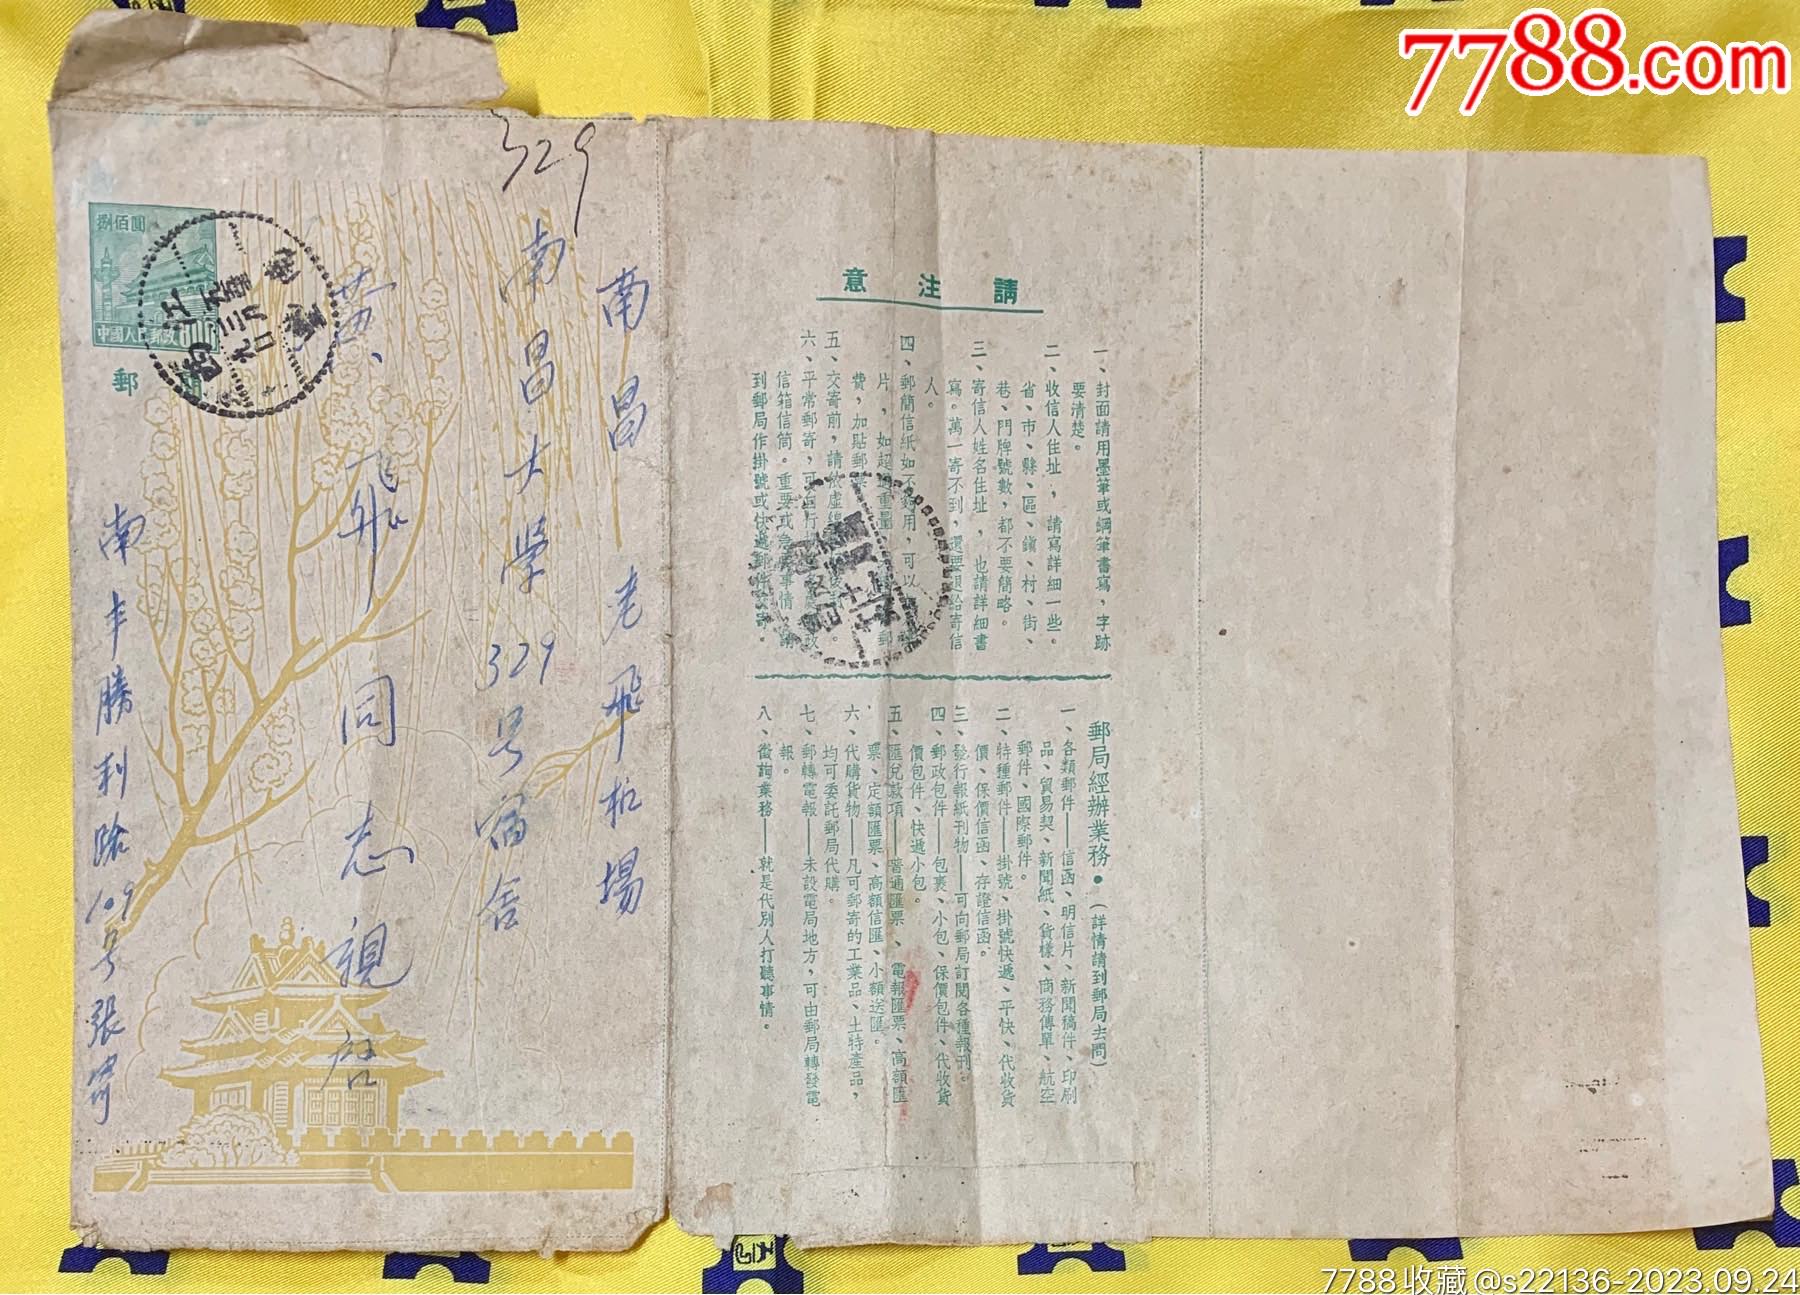 7788.com
329
捌佰圓
中國人民郵政 800
郵 簡
南昌 老飛機場
南昌大学 329号宿舍
黄 飛 同志 視 啓
南丰勝利路109号張寄
請注意
一、封面請用墨筆或鋼筆書寫，字跡
要清楚。
二、收信人住址，請寫詳細一些。
省、市、縣、區、鎮、村、街、
巷、門牌號數，都不要簡略。
三、寄信人姓名住址，也請詳細書
寫。萬一寄不到，還要退給寄信
人。
四、郵簡信紙如不夠用，可以
片，如超過重量
費，加貼郵票
五、交寄前，請依虛線
六、平常郵寄，可自行
信箱信筒。重要或急事情，請
到郵局作掛號或快遞郵件交寄。
郵局經辦業務•（詳情請到郵局去問）
一、各類郵件——信函、明信片、新聞稿件、印刷
品、貿易契、新聞紙、貨樣、商務傳單、航空
郵件、國際郵件。
二、特種郵件——掛號、掛號快遞、平快、代收貨
價、保價信函、存證信函。
三、發行報紙刊物——可向郵局訂閱各種報刊。
四、郵政包件——包裹、小包、保價包件、代收貨
價包件、快遞小包。
五、匯兌款項——普通匯票、電報匯票、高額匯
票、定額匯票、高額信匯、小額送匯。
六、代購貨物——凡可郵寄的工業品、土特產品，
均可委託郵局代購。
七、郵轉電報——未設電局地方，可由郵局轉發電
報。
八、徵詢業務——就是代別人打聽事情。
7788收藏@s22136-2023.09.24